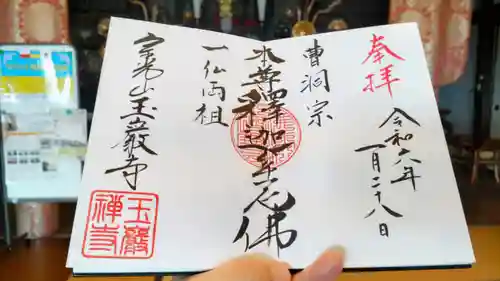 奉拝
令和六年
一月二十八日
曹洞宗
本尊釋迦牟尼佛
一仏両祖
玉巖寺
玉巖
禅寺